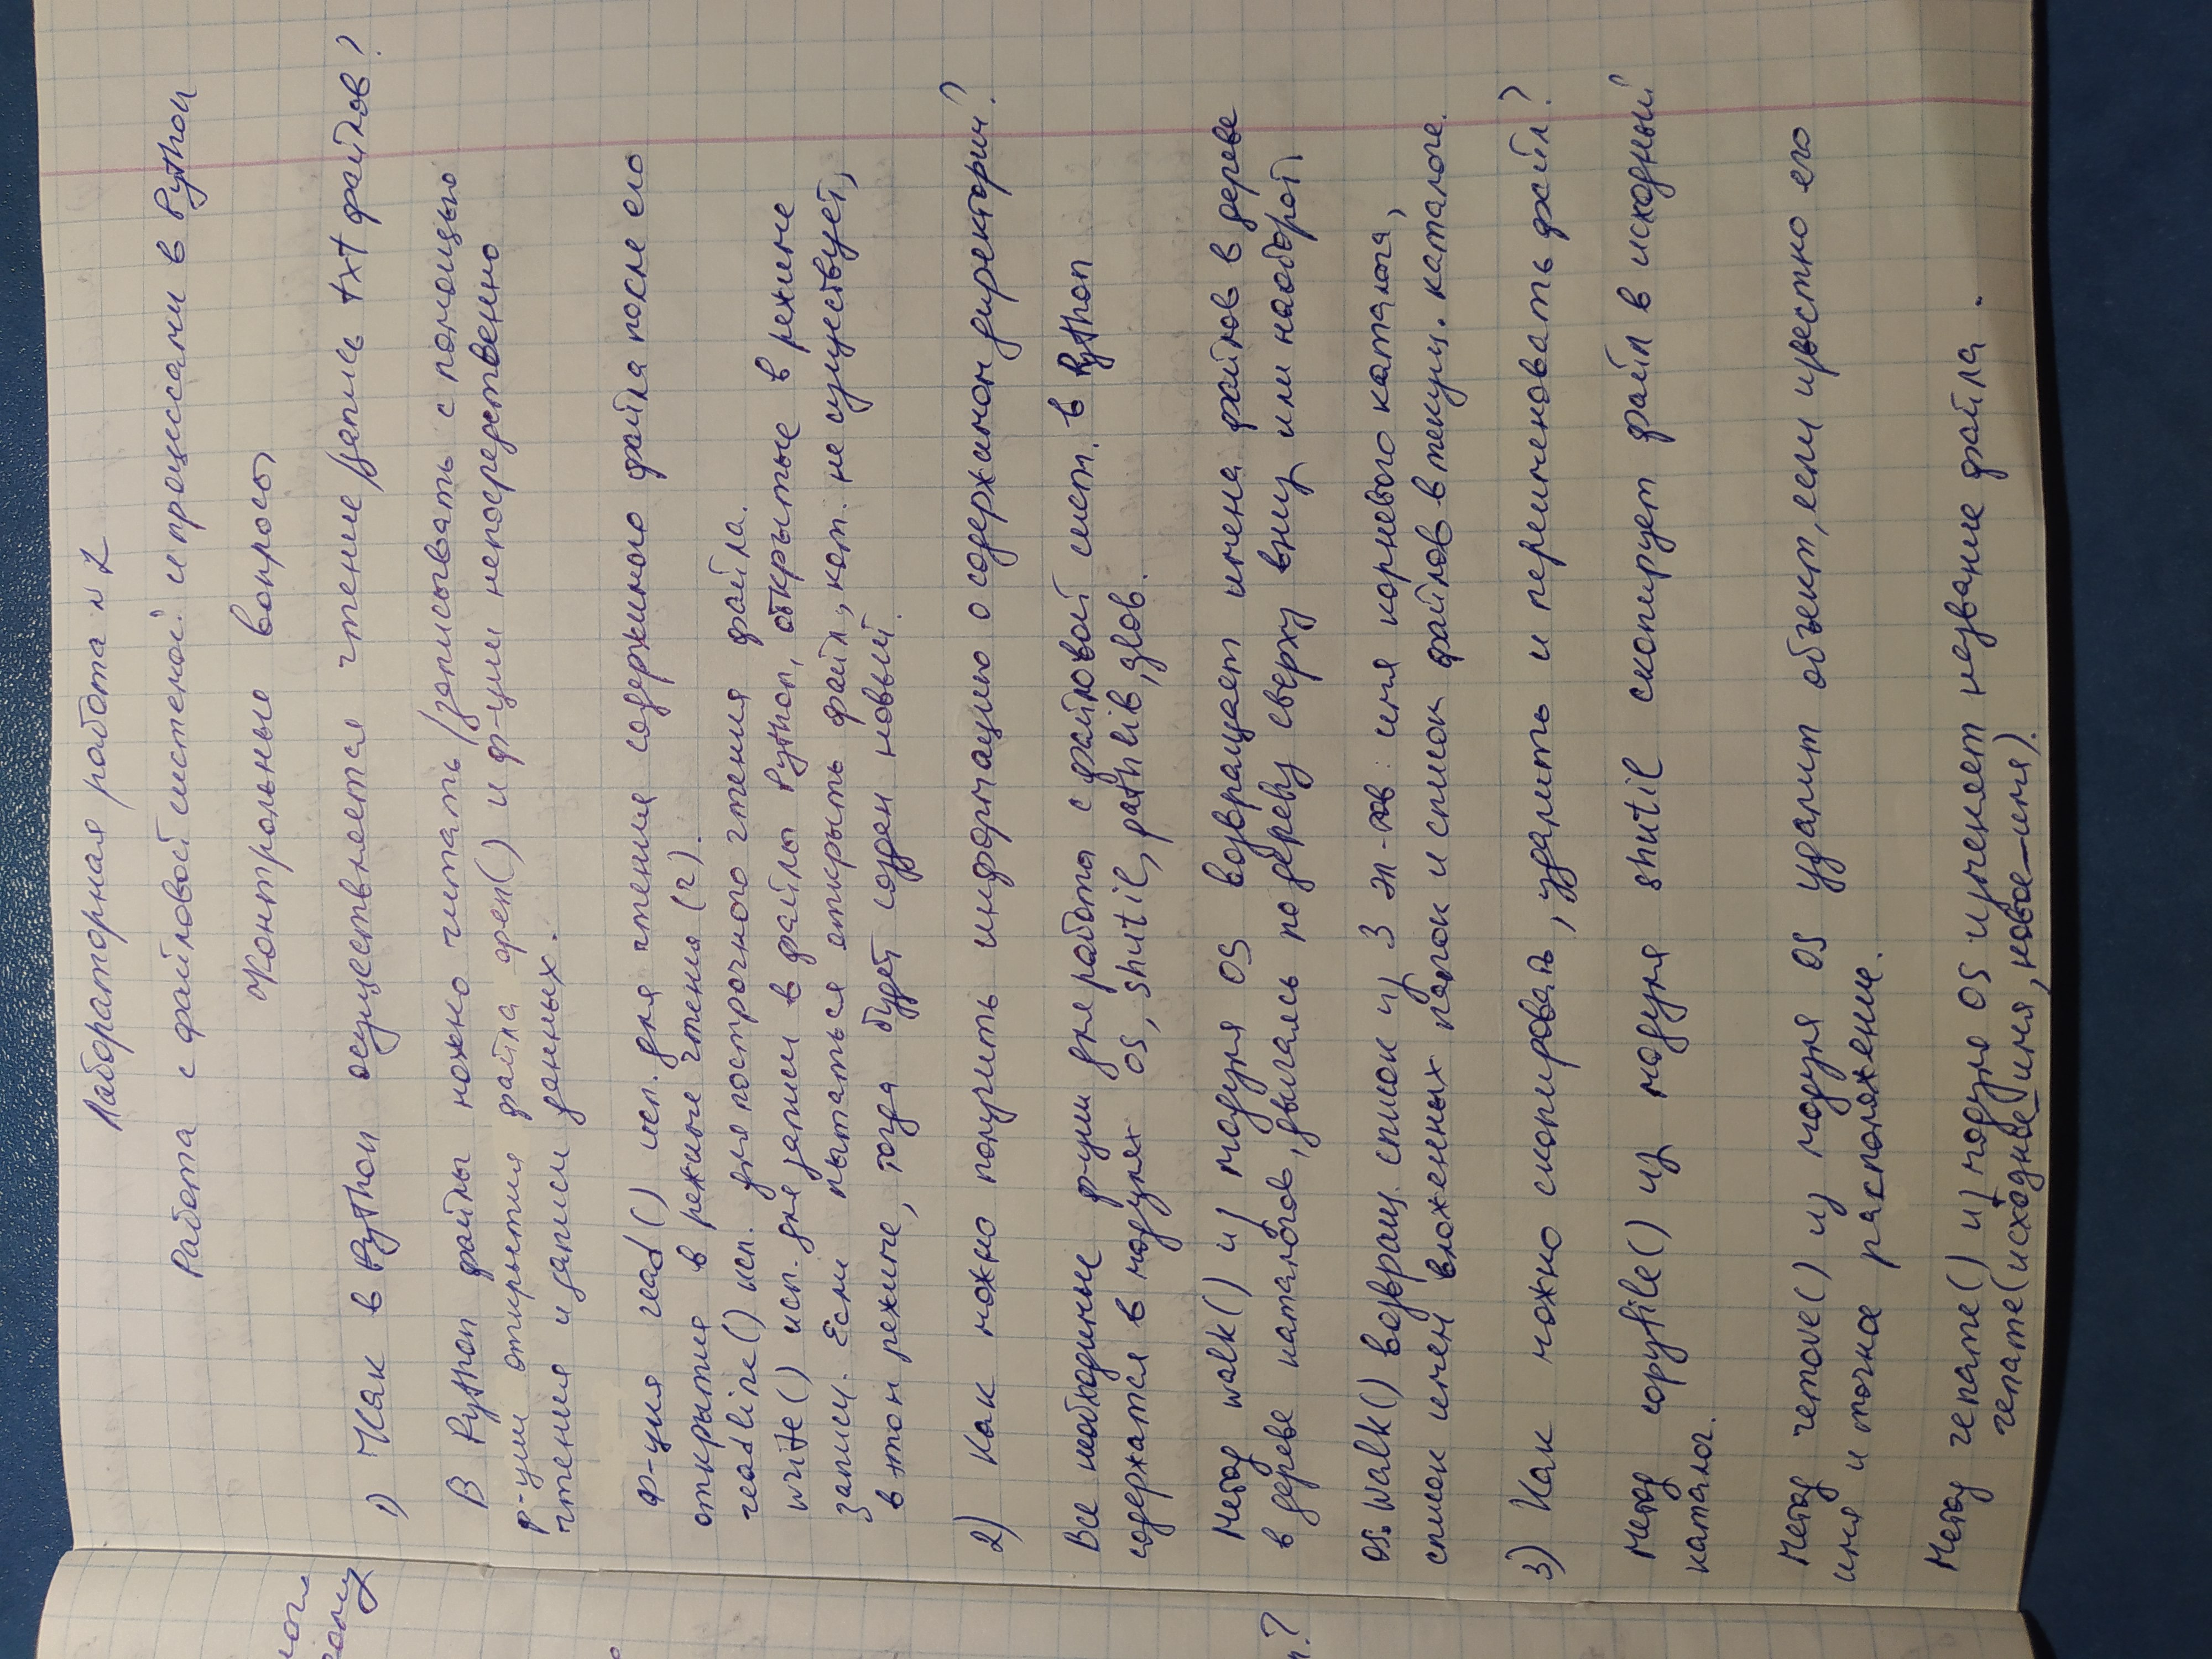 Лабораторная работа №2
Работа с файловой системой и процессами в Python
Контрольные вопросы
1) Как в Python осуществляется чтение/запись txt файлов?
В Python файлы можно читать/записывать с помощью
ф-ции открытия файла open() и ф-ции непосредственно
чтения и записи данных.
Ф-ция read() исп. для чтения содержимого файла после его
открытия в режиме чтения (r).
readline() исп. для построчного чтения файла.
write() исп. для записи в файлы Python, открытые в режиме
записи. Если пытаться открыть файл, кот. не существует,
в этом режиме, тогда будет создан новый.
2) Как можно получить информацию о содержимом директории?
Все необходимые ф-ции для работы с файловой сист. в Python
содержатся в модулях os, shutil, pathlib, glob.
Метод walk() из модуля OS возвращает имена файлов в дереве
в дереве каталогов, двигаясь по дереву сверху вниз или наоборот.
os.walk() возвращ. список из 3 эл-тов: имя корневого каталога,
список имен вложенных папок и список файлов в текущ. каталоге.
3) Как можно скопировать, удалить и переименовать файл?
Метод copyfile() из модуля shutil скопирует файл в исходный
каталог.
Метод remove() из модуля OS удалит объект, если известно его
имя и точное расположение.
Метод rename() из модуля OS изменяет название файла.
rename(исходное_имя, новое_имя).